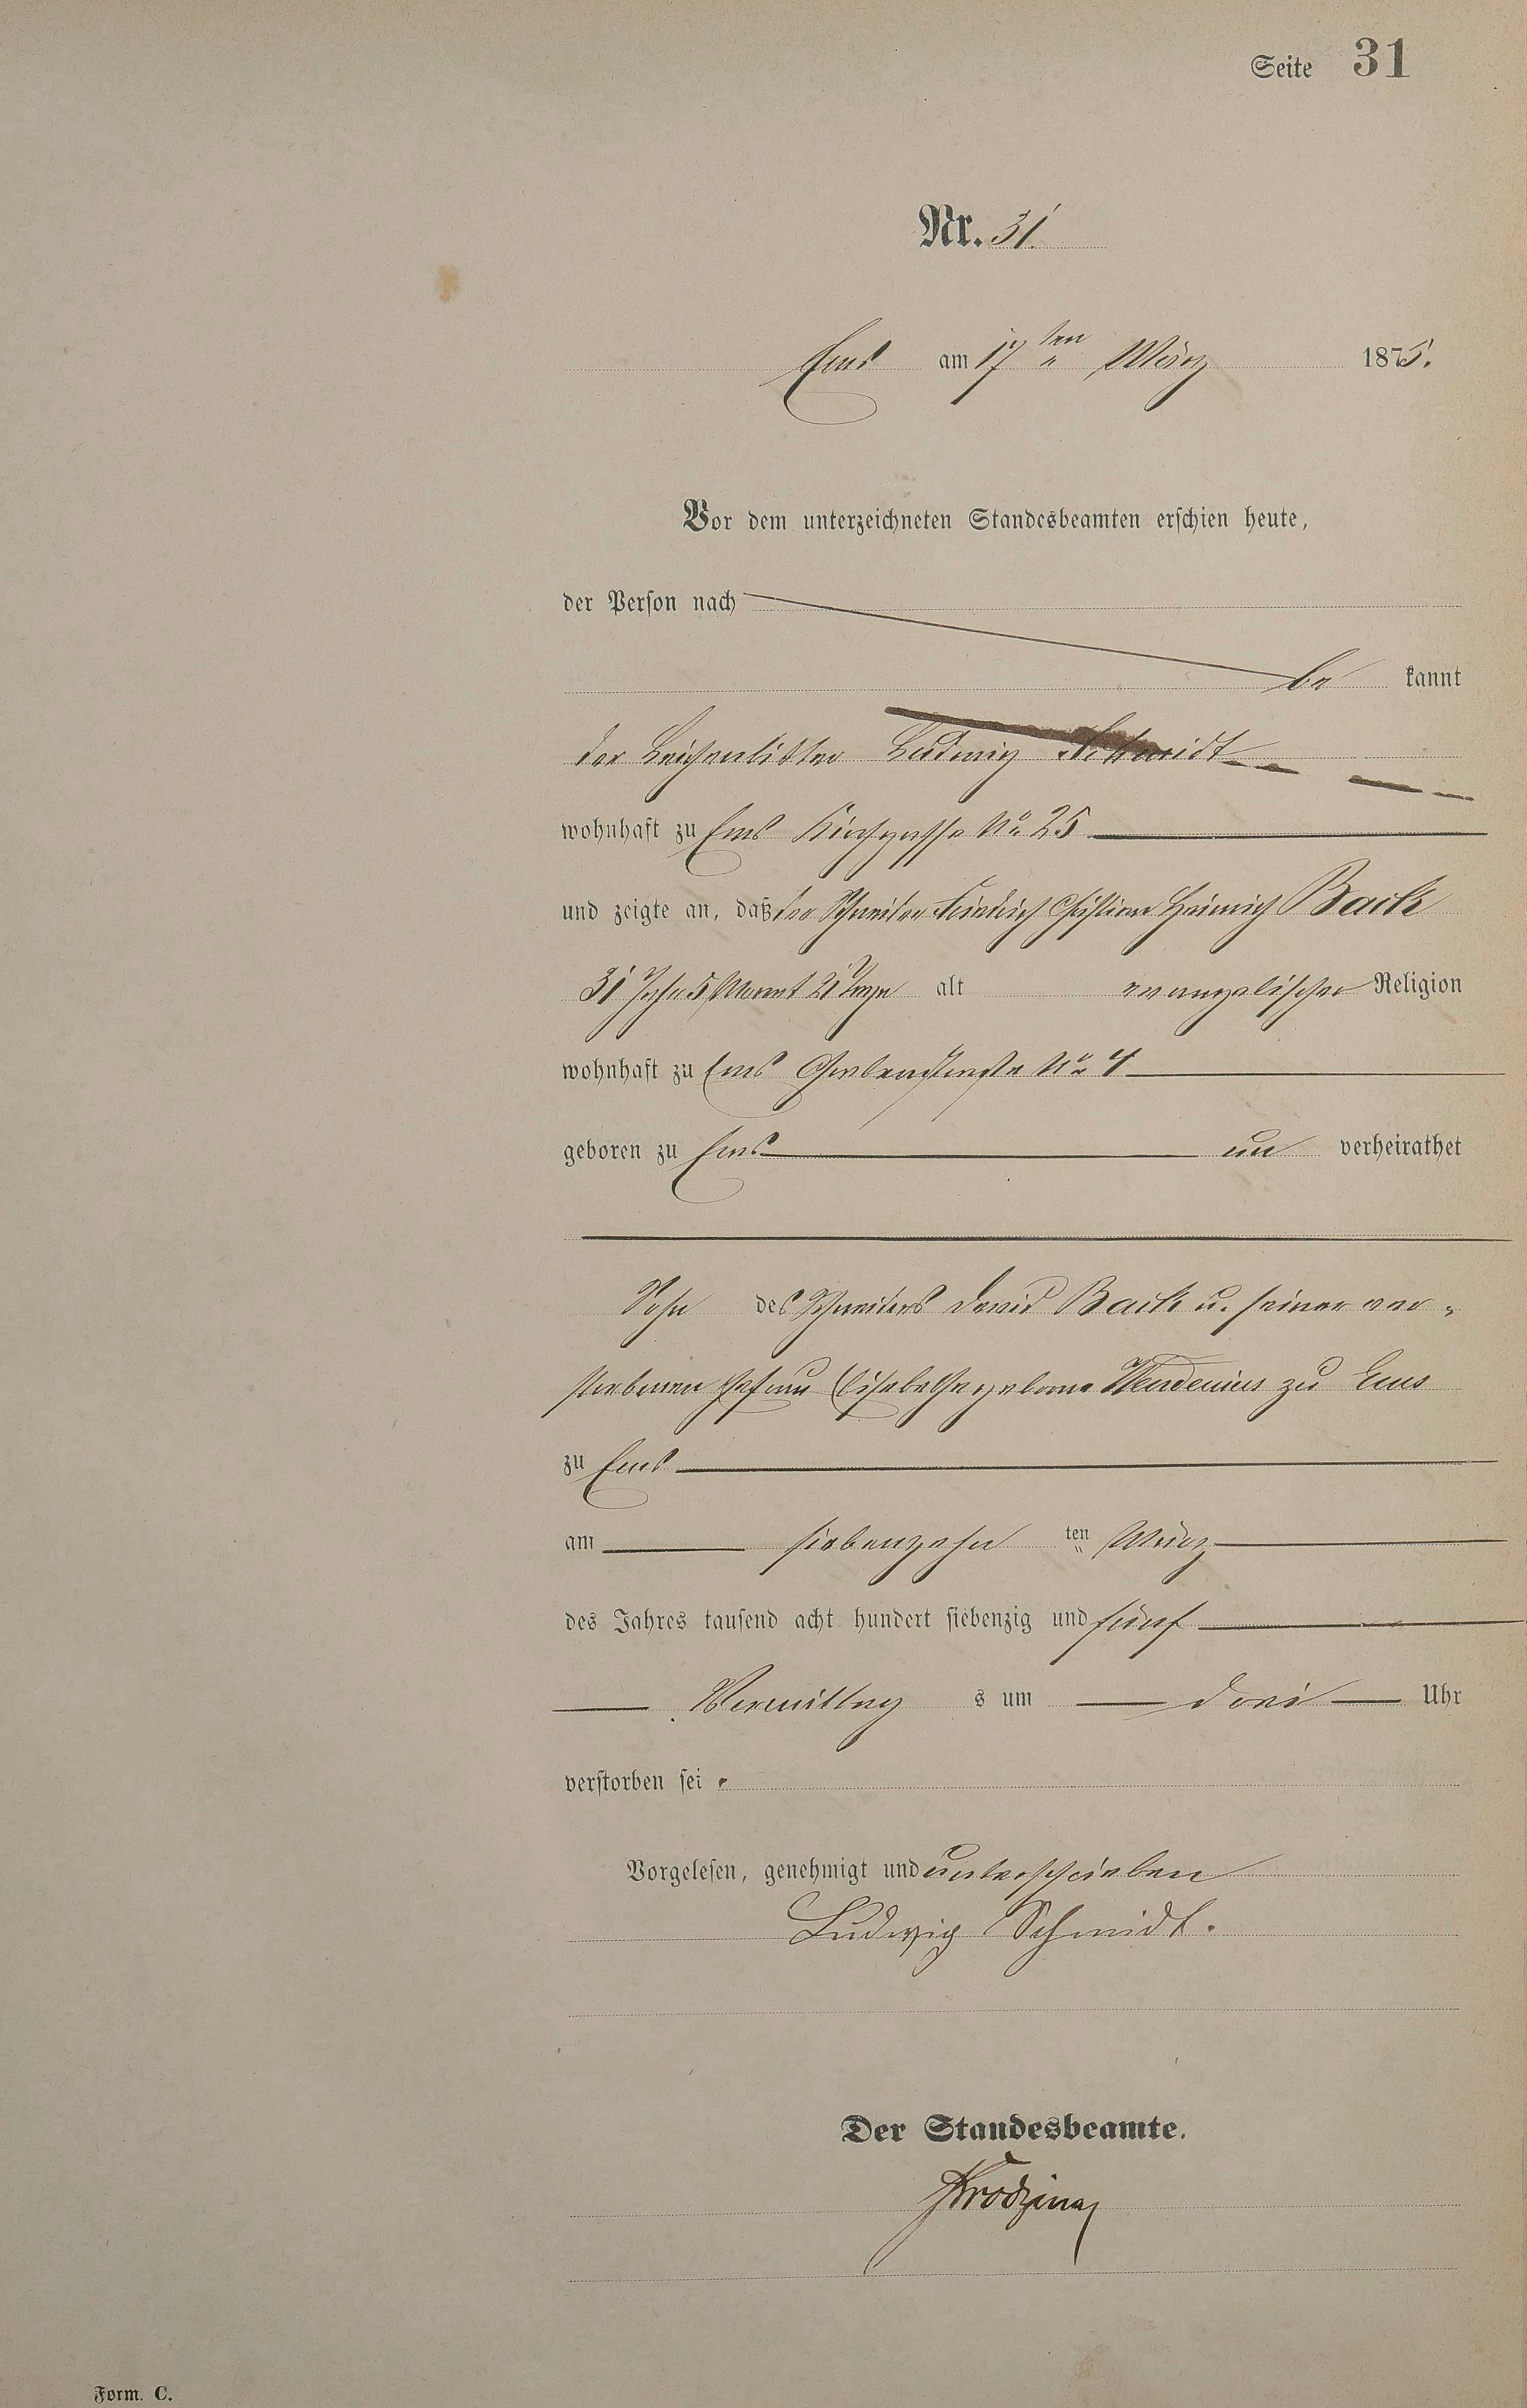 Seite 31
Nr. 31.
Ems am 17ten März 1875.
Vor dem unterzeichneten Standesbeamten erschien heute,
der Person nach
be kannt
der Leichenbitter Ludwig Schmidt
wohnhaft zu Ems Kirchgasse No 25
und zeigte an, daß der Schneider Friedrich Christian Heinrich Back
31 Jahr 5 Monat 21 Tage alt evangelischer Religion
wohnhaft zu Ems Grabenstraße No 4
geboren zu Ems un verheirathet
Sohn des Schneiders David Back u. seiner ver-
storbenen Ehefrau Elisabethe geborne zu Ems
zu Ems
am siebenzehn ten März
des Jahres tausend acht hundert siebenzig und fünf
Vormittag s um drei Uhr
verstorben sei.
Vorgelesen, genehmigt und unterschrieben
Ludwig Schmidt.
Der Standesbeamte.
Form. C.